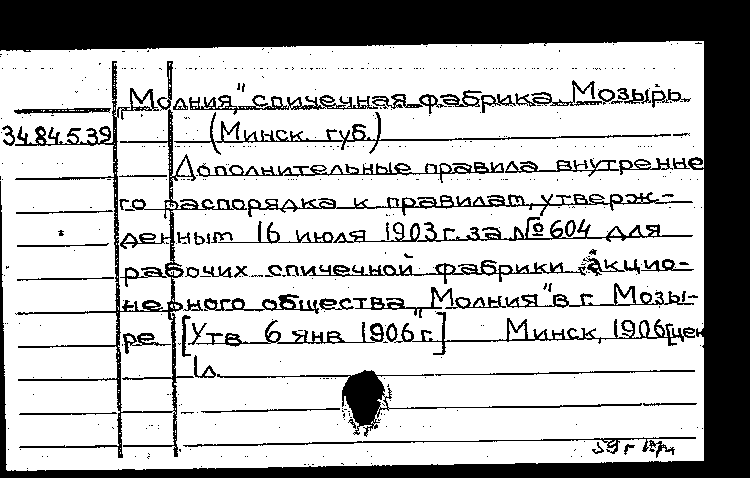 „Молния" спичечная фабрика. Мозырь
34.84.5.39 (Минск. губ.)
Дополнительные правила внутренне
го распорядка к правилам, утверж-
денным 16 июля 1903 г. за № 604 для
рабочих спичечной фабрики акцио-
нерного общества „Молния" в г. Мозы-
ре [Утв 6 янв 1906 г.] Минск, 1906 [цен
1 л.
59 г